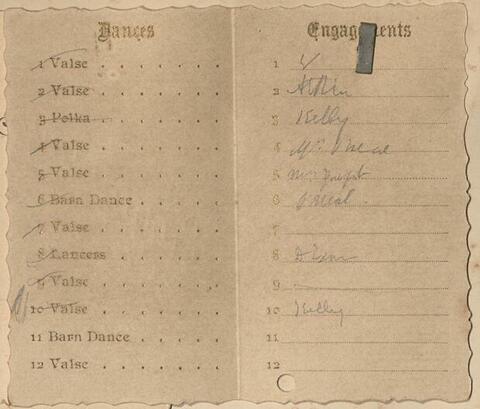 Dances
1 Valse . . . . . . .
2 Valse . . . . . . .
3 Polka . . . . . . .
4 Valse . . . . . . .
5 Valse . . . . . . .
6 Barn Dance . . . . .
7 Valse . . . . . . .
8 Lancers . . . . . .
9 Valse . . . . . . .
10 Valse . . . . . . .
11 Barn Dance . . . . .
12 Valse . . . . . . .
Engagements
1
2
3 Kelly
4
5
6
7
8
9
10 Kelly
11
12